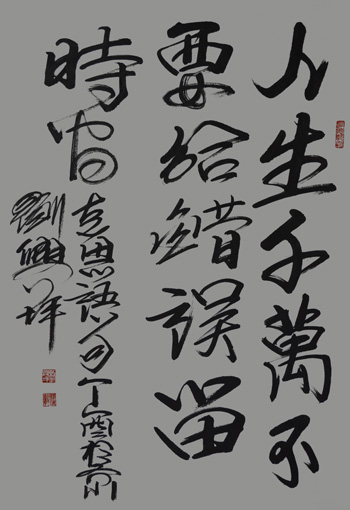 人生千萬不
要給錯誤留
時間
思語句丁酉
劉興